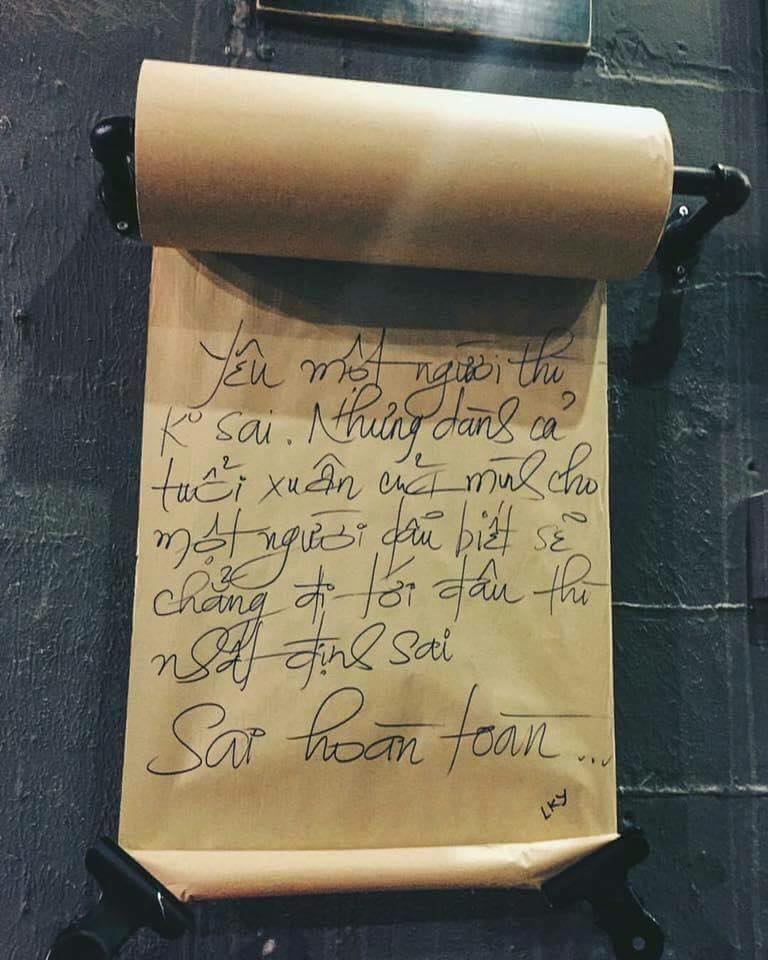 Yêu một người thì
k° sai. Nhưng dành cả
tuổi xuân của mình cho
một người dẫu biết sẽ
chẳng đi tới đâu thì
nhất định sai
Sai hoàn toàn...
LKY